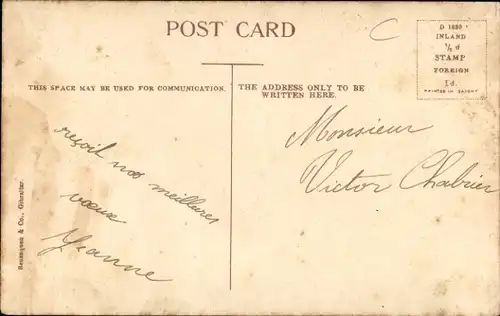 POST CARD
C
D 1650
INLAND
½ d
STAMP
FOREIGN
1d.
PRINTED IN SAXONY
THIS SPACE MAY BE USED FOR COMMUNICATION.
THE ADDRESS ONLY TO BE
WRITTEN HERE.
reçoit nos meilleures
vœux
Jeanne
Monsieur
Victor Chabrier
Benzaquen & Co., Gibraltar